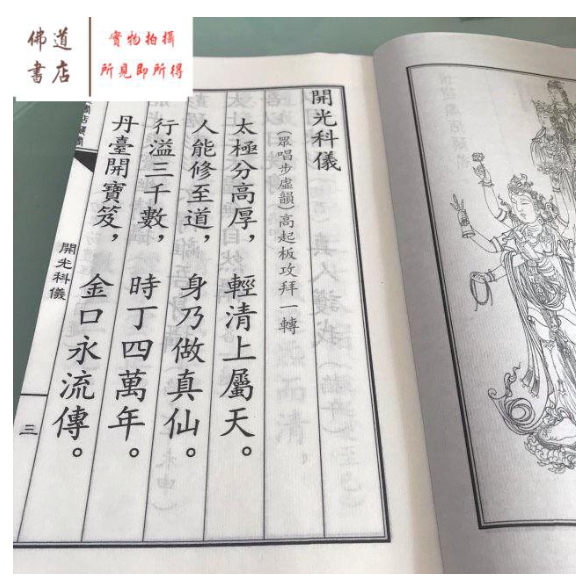 佛道
書店
實物拍攝
所見即所得
開光科儀
(眾唱步虛韻)高起板攻拜一轉
太極分高厚，輕清上屬天。
人能修至道，身乃做真仙。
行溢三千數，時丁四萬年。
丹臺開寶笈，金口永流傳。
開光科儀
三